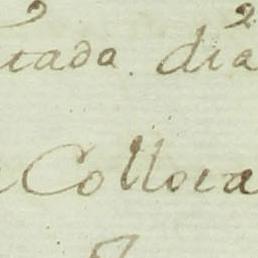 tada dia
Colloca